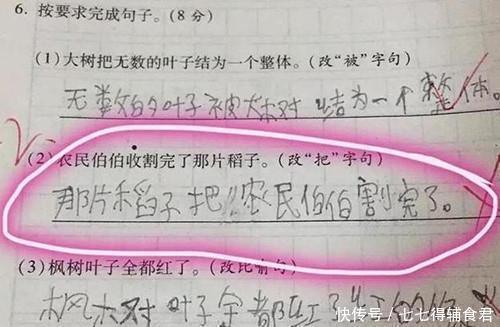 6. 按要求完成句子。(8分)
(1)大树把无数的叶子结为一个整体。(改“被”字句)
无数的叶子被大树结为一个整体。
(2)农民伯伯收割完了那片稻子。(改“把”字句)
那片稻子把农民伯伯割完了。
(3)枫树叶子全都红了。(改比喻句)
枫树叶子全都红了
快传号/七七得辅食君